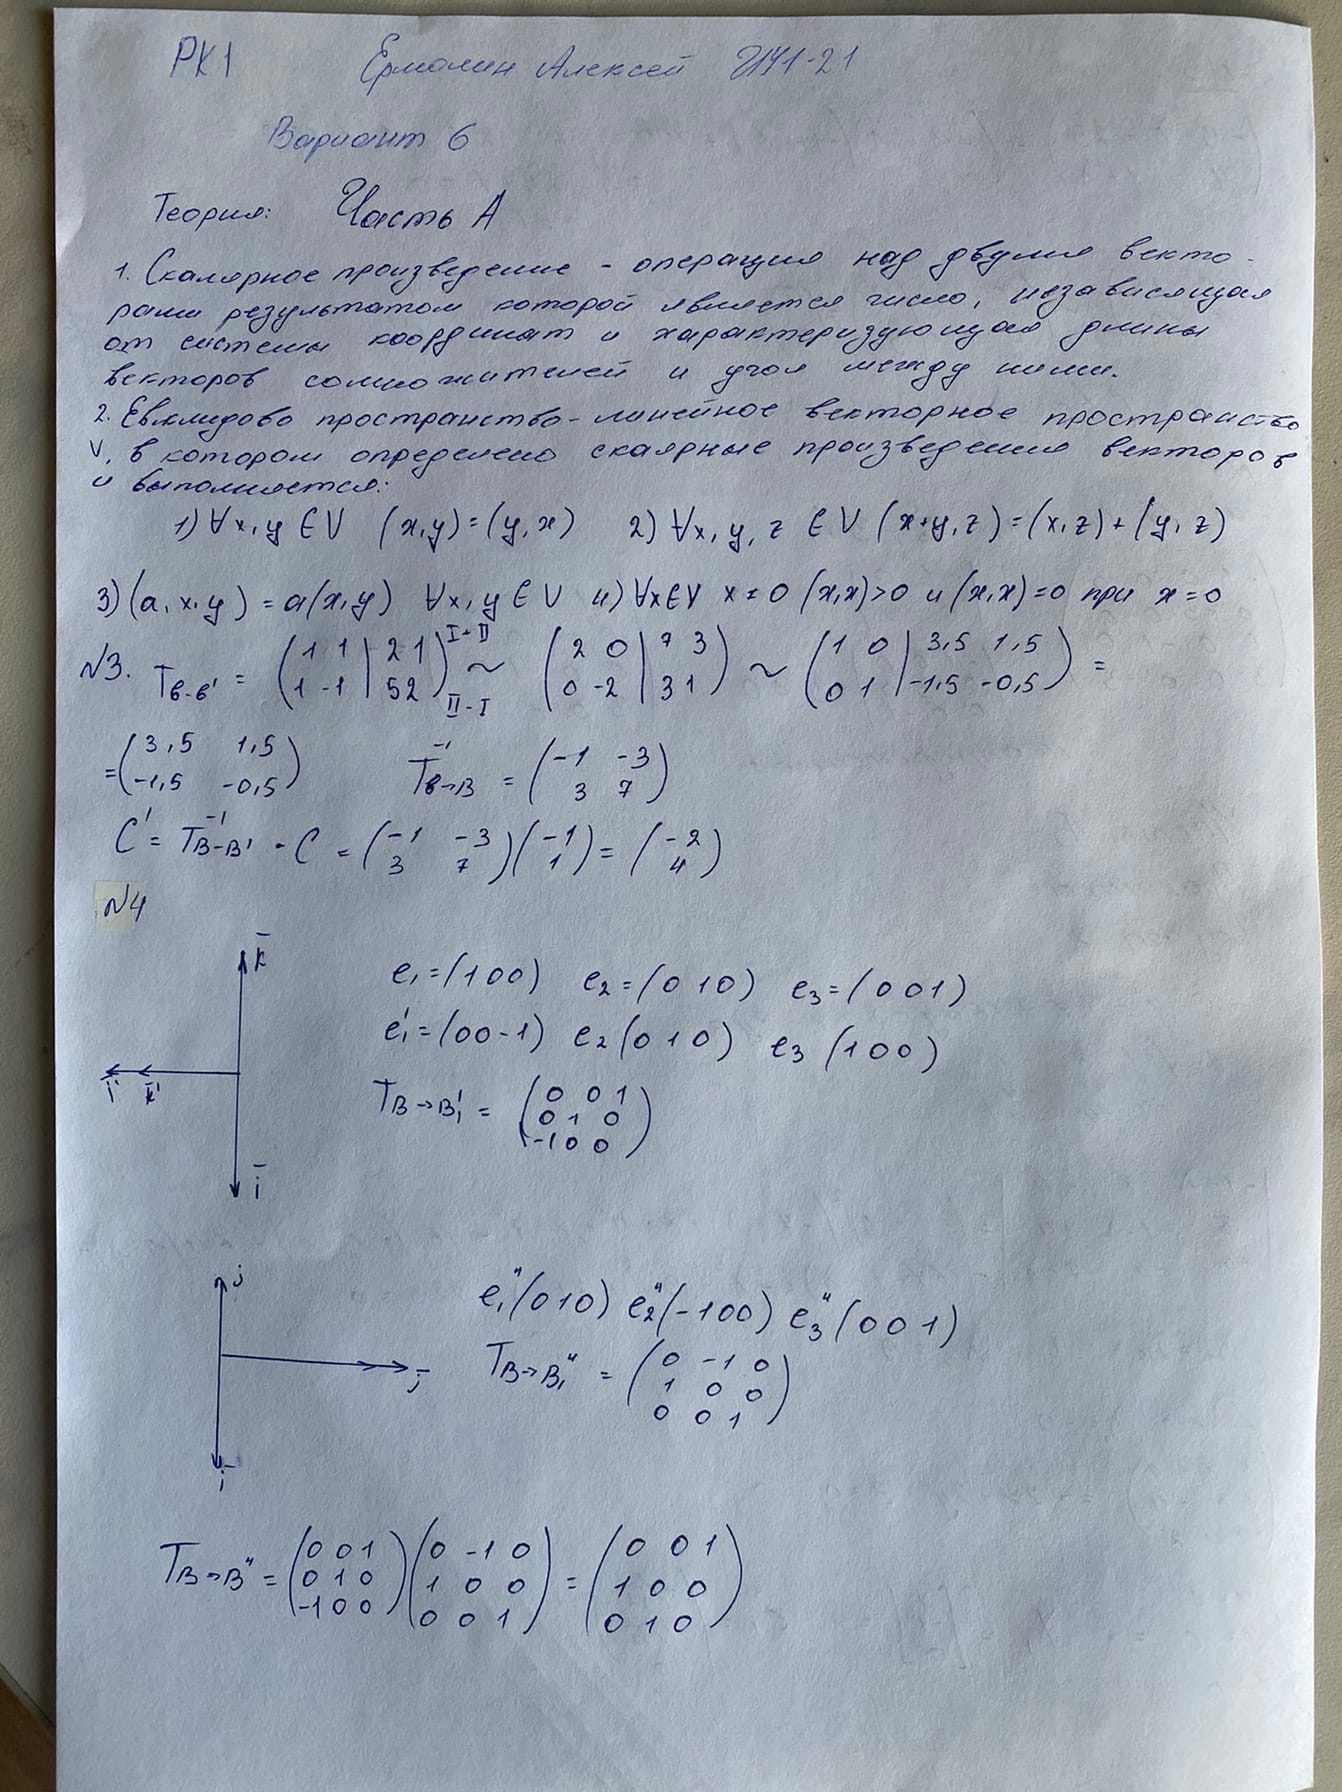 РК1 Ермолин Алексей ИУ1-21
Вариант 6
Теория: Часть А
1. Скалярное произведение - операция над двумя векто-
рами результатом которой является число, независящая
от системы координат и характеризующая длины
векторов сомножителей и угол между ними.
2. Евклидово пространство - линейное векторное пространство
V, в котором определено скаярные произведения векторов
и выполняется:
1) ∀x, y ∈ V (x,y) = (y,x) 2) ∀x, y, z ∈ V (x+y,z) = (x,z) + (y,z)
3) (a, x, y) = a(x,y) ∀x, y ∈ V 4) ∀x∈V x ≠ 0 (x,x)>0 и (x,x)=0 при x=0
№3. T в-в' = (1 1 | 2 1) I+II ~ (2 0 | 7 3) ~ (1 0 | 3,5 1,5) =
(1 -1 | 5 2) II-I (0 -2 | 3 1) (0 1 | -1,5 -0,5)
= (3,5 1,5) T⁻¹ в→В = (-1 -3)
(-1,5 -0,5) (3 7)
C' = T⁻¹ В-В' · C = (-1 -3) (-1) = (-2)
(3 7) (1) (4)
№4
k̄
e₁=(100) e₂=(010) e₃=(001)
e₁'=(00-1) e₂(010) e₃(100)
ī' k̄'
T В→В₁' = (0 0 1)
(0 1 0)
(-1 0 0)
ī
j
e₁''(010) e₂''(-100) e₃''(001)
j̄
T В→В₁'' = (0 -1 0)
(1 0 0)
(0 0 1)
ī
T В→В'' = (0 0 1) (0 -1 0) = (0 0 1)
(0 1 0) (1 0 0) (1 0 0)
(-1 0 0) (0 0 1) (0 1 0)